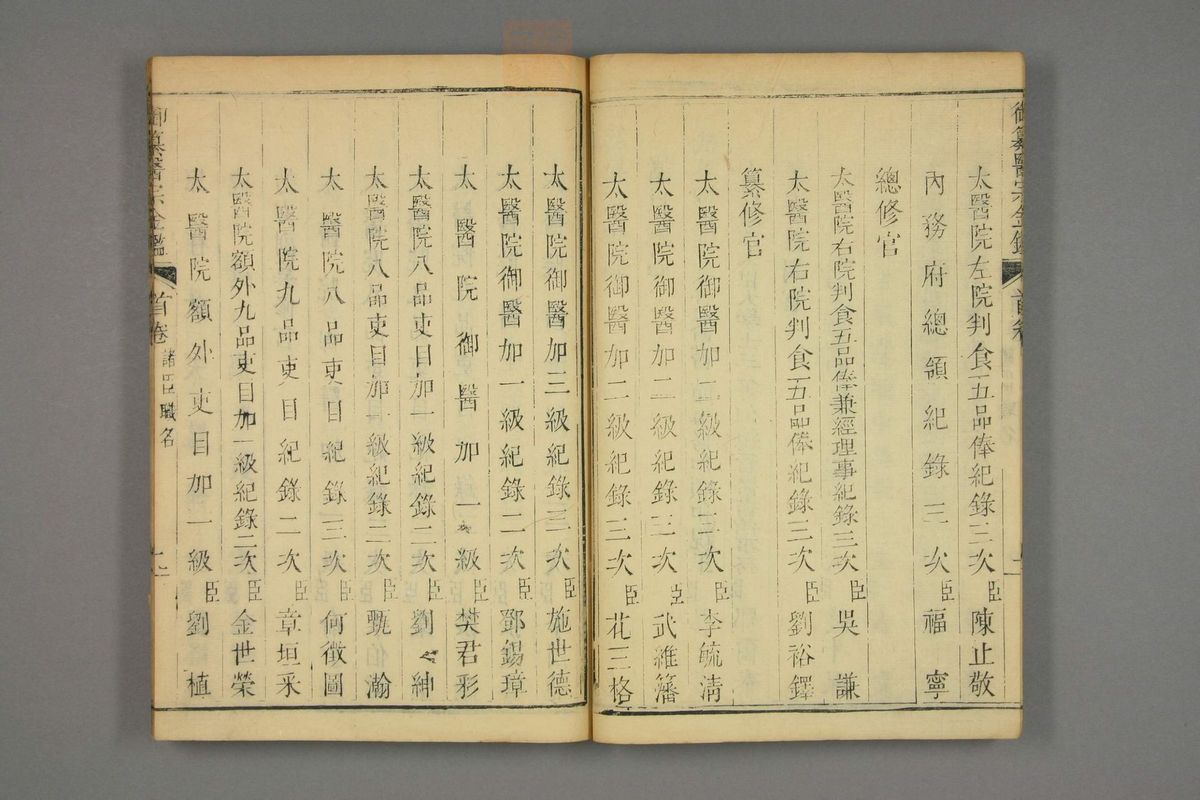 御纂醫宗金鑑 首卷
太醫院左院判食五品俸紀錄三次臣陳止敬
內務府總領紀錄三次臣福寧
總修官
太醫院右院判食五品俸兼經理事紀錄三次臣吳謙
太醫院右院判食五品俸紀錄三次臣劉裕鐸
纂修官
太醫院御醫加二級紀錄三次臣李毓清
太醫院御醫加二級紀錄三次臣武維藩
太醫院御醫加二級紀錄三次臣花三格
太醫院御醫加三級紀錄三次臣施世德
太醫院御醫加一級紀錄二次臣鄧錫璋
太醫院御醫加一級臣樊君彩
太醫院八品吏目加一級紀錄二次臣劉紳
太醫院八品吏目加一級紀錄二次臣甄伯瀚
太醫院八品吏目紀錄三次臣何徵圖
太醫院九品吏目紀錄二次臣章垣采
太醫院額外九品吏目加一級紀錄二次臣金世榮
太醫院額外吏目加一級臣劉植
御纂醫宗金鑑 首卷 諸臣職名